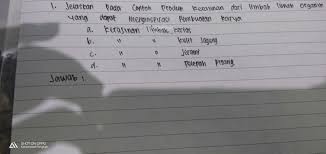 1. Jelaskan Pada Contoh Produk kerajinan dari limbah lunak organik
yang dapat menginspirasi Pembuatan karya
a. kerajinan limbah kertas
b. " " kulit Jagung
c. " " Jerami
d. " " Pelepah Pisang
Jawab :
SHOT ON OPPO